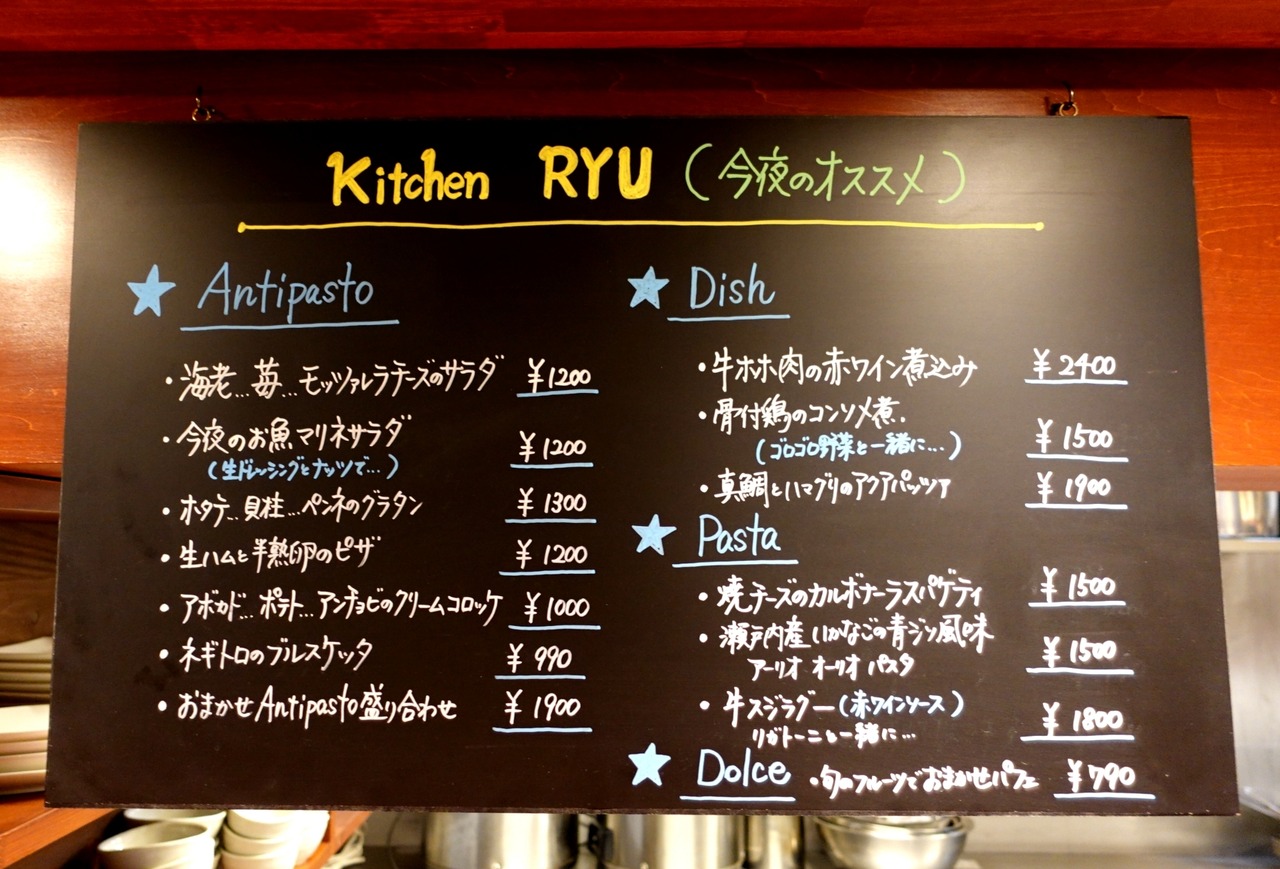 Kitchen RYU (今夜のオススメ)
★ Antipasto
・海老…苺…モッツァレラチーズのサラダ ¥1200
・今夜のお魚マリネサラダ ¥1200
(生ドレッシングとナッツで…)
・ホタテ…貝柱…ペンネのグラタン ¥1300
・生ハムと半熟卵のピザ ¥1200
・アボカド…ポテト…アンチョビのクリームコロッケ ¥1000
・ネギトロのブルスケッタ ¥990
・おまかせAntipasto盛り合わせ ¥1900
★ Dish
・牛ホホ肉の赤ワイン煮込み ¥2400
・骨付鶏のコンソメ煮. ¥1500
(ゴロゴロ野菜と一緒に…)
・真鯛とハマグリのアクアパッツァ ¥1900
★ Pasta
・焼チーズのカルボナーラスパゲティ ¥1500
・瀬戸内産いかなごの青ジソ風味
アーリオ オーリオ パスタ ¥1500
・牛スジラグー(赤ワインソース) ¥1800
リガトーニと一緒に…
★ Dolce ・旬のフルーツでおまかせパフェ ¥790